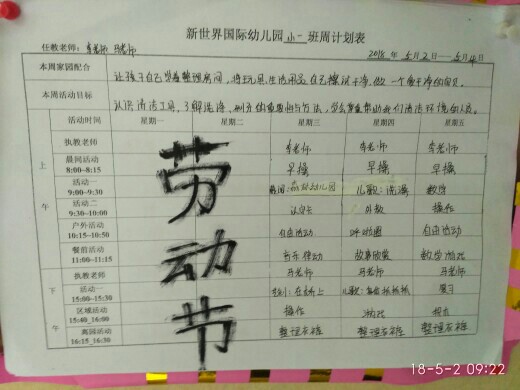 新世界国际幼儿园 小一 班周计划表
任教老师：李老师 马老师 2018 年 5 月 2 日——5 月 4 日
本周家园配合 让孩子自己学着整理房间，将玩具、生活用品自己擦拭干净，做一个爱干净的宝贝。
本周活动目标 认识清洁工具，了解洗澡、刷牙的重要与方法，学会尊重帮助我们清洁环境的人员。
活动时间 星期一 星期二 星期三 星期四 星期五
劳动节
上午
执教老师 李老师 李老师 李老师
晨间活动 8:00~8:15 早操 早操 早操
活动一 9:00~9:30 幼儿园 儿歌：洗澡 数学
活动二 9:30~10:00 认字卡 外教 操作
户外活动 10:15~10:50 自由活动 呼啦圈 自由活动
餐前活动 11:00~11:15 音乐律动 故事欣赏 数学游戏
下午
执教老师 马老师 马老师 马老师
活动一 15:00~15:30 儿歌： 复习
区域活动 15:40_16:00 操作 游戏
离园活动 16:15_16:30 整理衣裤 整理衣裤 整理衣裤
18-5-2 09:22